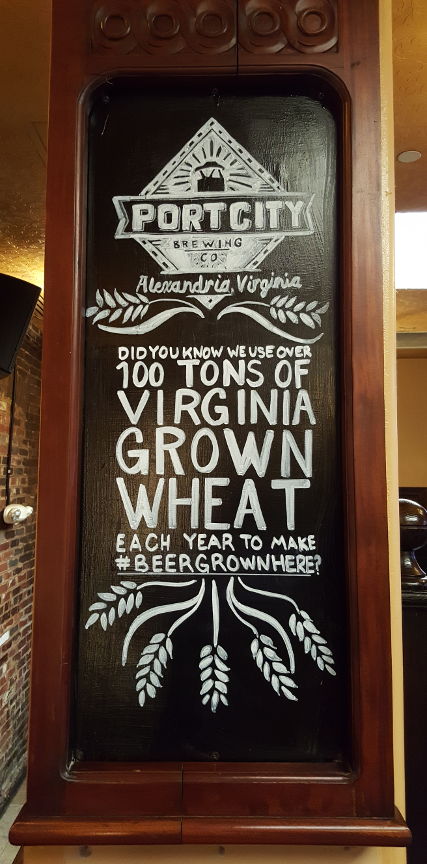 PORT CITY
BREWING
CO
Alexandria, Virginia
DID YOU KNOW WE USE OVER
100 TONS OF
VIRGINIA
GROWN
WHEAT
EACH YEAR TO MAKE
#BEERGROWNHERE?